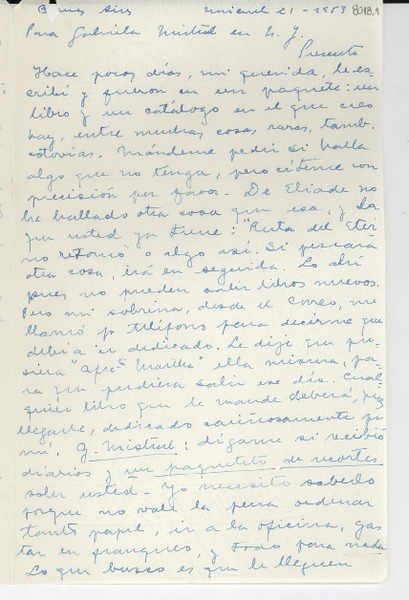 Buenos Aires Miércoles 21 - 1953 8018.1
Para Gabriela Mistral en N. Y.
Presente
Hace pocos días, mi querida, le es-
cribí y fueron en un paquete: un
libro y un catálogo en el que creo
hay, entre muchas cosas raras, tamb.
Mándeme pedir si halla
algo que no tenga, pero cíteme con
precisión por favor. De Eliade no
he hallado otra cosa que esa, y la
que usted ya tiene: "Ruta del Eter
no retorno" o algo así. Si pescara
otra cosa, irá en seguida. Lo abrí
pues no pueden salir libros nuevos.
Pero mi sobrina, desde el correo, me
llamó p. teléfono para decirme que
debía ir dedicado. Le dije que pu-
siera "Martha" ella misma, pa-
ra que pudiera salir ese día. Cual-
quier libro que le mande deberá, pues
llegarle, dedicado cariñosamente por
mí. G. Mistral: dígame si recibió
diarios y un paquetito de recortes
sobre usted - Yo necesito saberlo
porque no vale la pena ordenar
tanto papel, ir a la oficina, gas
tar en franqueo, y todo para nada
Lo que busco es que le lleguen